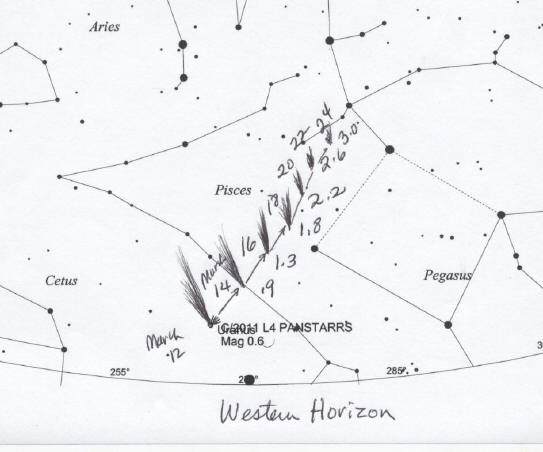 Aries
22
24
3.0
20
2.6
Pisces
18
2.2
1.8
16
1.3
March
14
.9
Cetus
Pegasus
C/2011 L4 PANSTARRS
Mag 0.6
March
12
255°
285°
Western Horizon